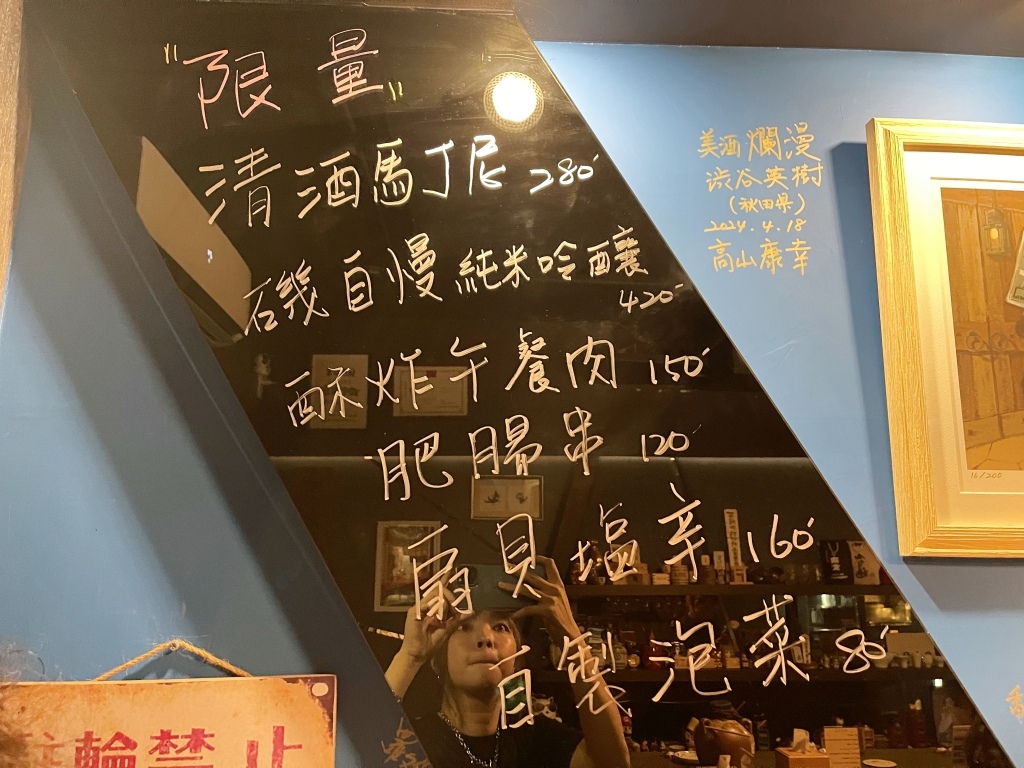 "限量"
清酒馬丁尼 280
磯自慢 純米吟釀
420
酥炸午餐肉 150
肥腸串 120
扇貝塩辛 160
自製泡菜 80
美酒爛漫
渋谷英樹
(秋田県)
2024.4.18
高山康幸
16/200
駐輪禁止